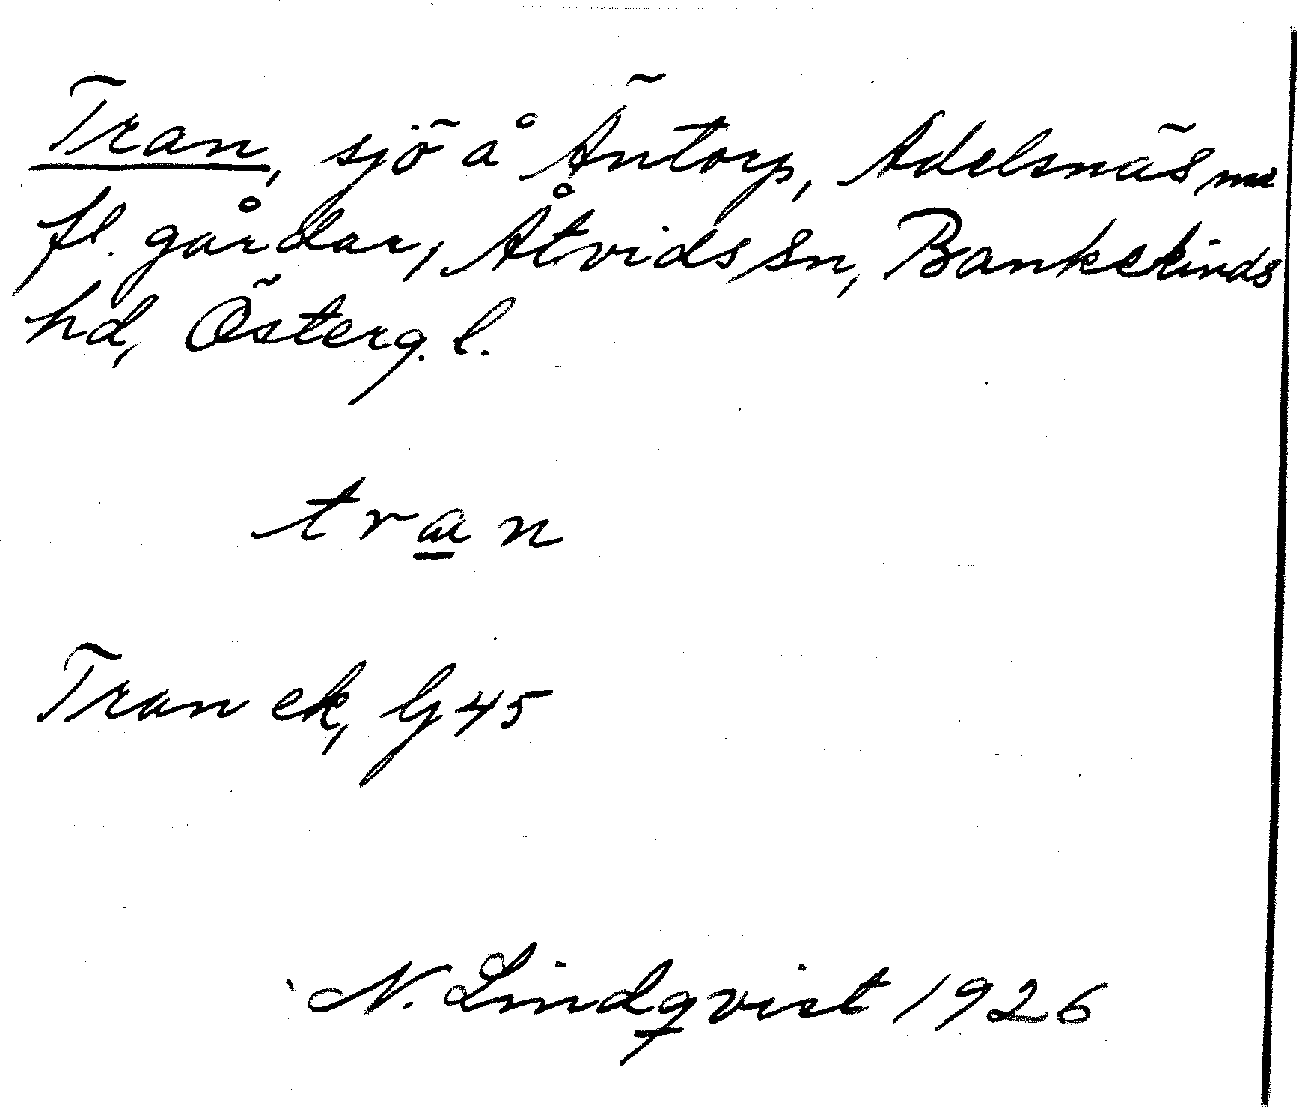 Tran, sjö å Äntorp, Adelsnäs m
fl. gårdar, Åtvids sn, Bankekinds
hd, Österg. l.
tran
Tran ek, G 45
N. Lindqvist 1926